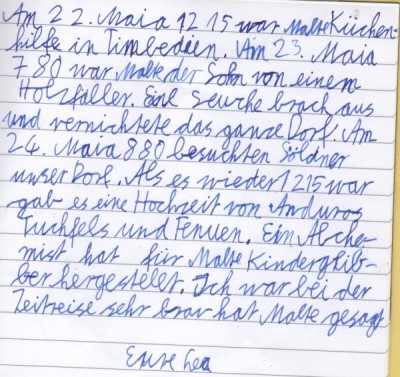 Am 22. Maia 1215 war Malte Küchen-
hilfe in Timbedien. Am 23. Maia
780 war Malte der Sohn von einem
Holzfäller. Eine Seuche brach aus
und vernichtete das ganze Dorf. Am
24. Maia 880 besuchten Söldner
unser Dorf. Als es wieder 1215 war
gab es eine Hochzeit von Anduros
Tuchfels und Fenuen. Ein Alche-
mist hat für Malte Kinderglib-
ber hergestellt. Ich war bei der
Zeitreise sehr brav hat Malte gesagt
Eure Lea